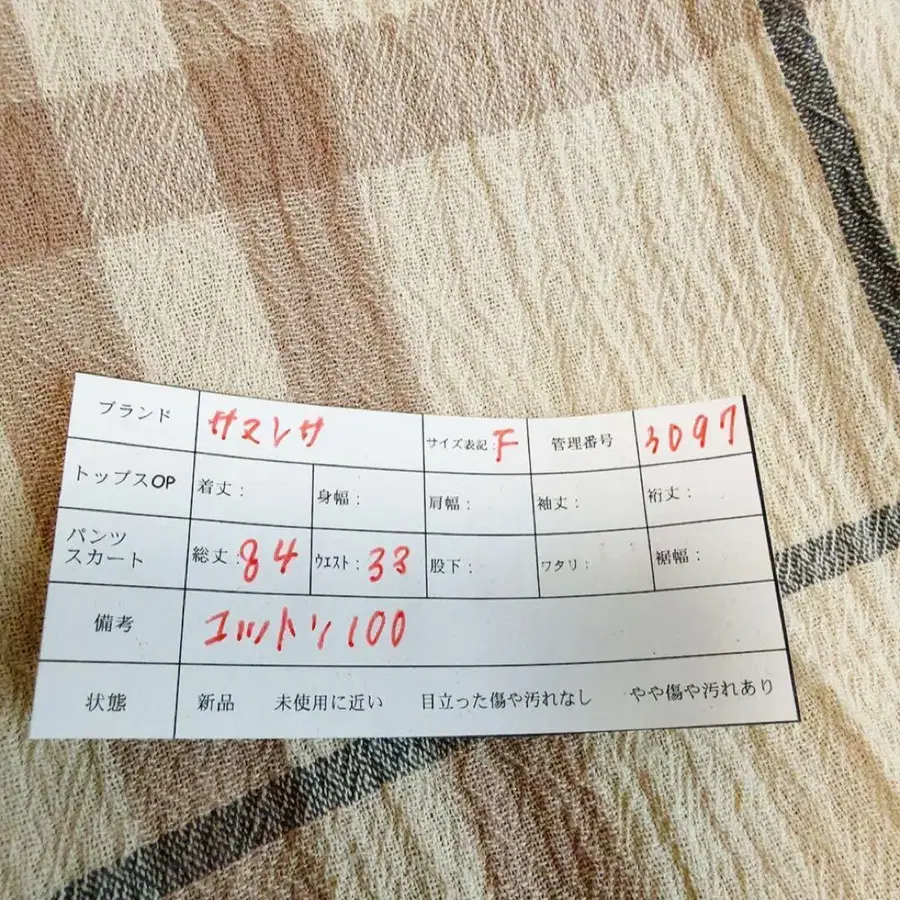 ブランド サマンサ サイズ表記:F 管理番号 3097
トップスOP 着丈: 身幅: 肩幅: 袖丈: 裄丈:
パンツ
スカート 総丈:84 ウエスト:33 股下: ワタリ: 裾幅:
備考 コットン100
状態 新品 未使用に近い 目立った傷や汚れなし やや傷や汚れあり